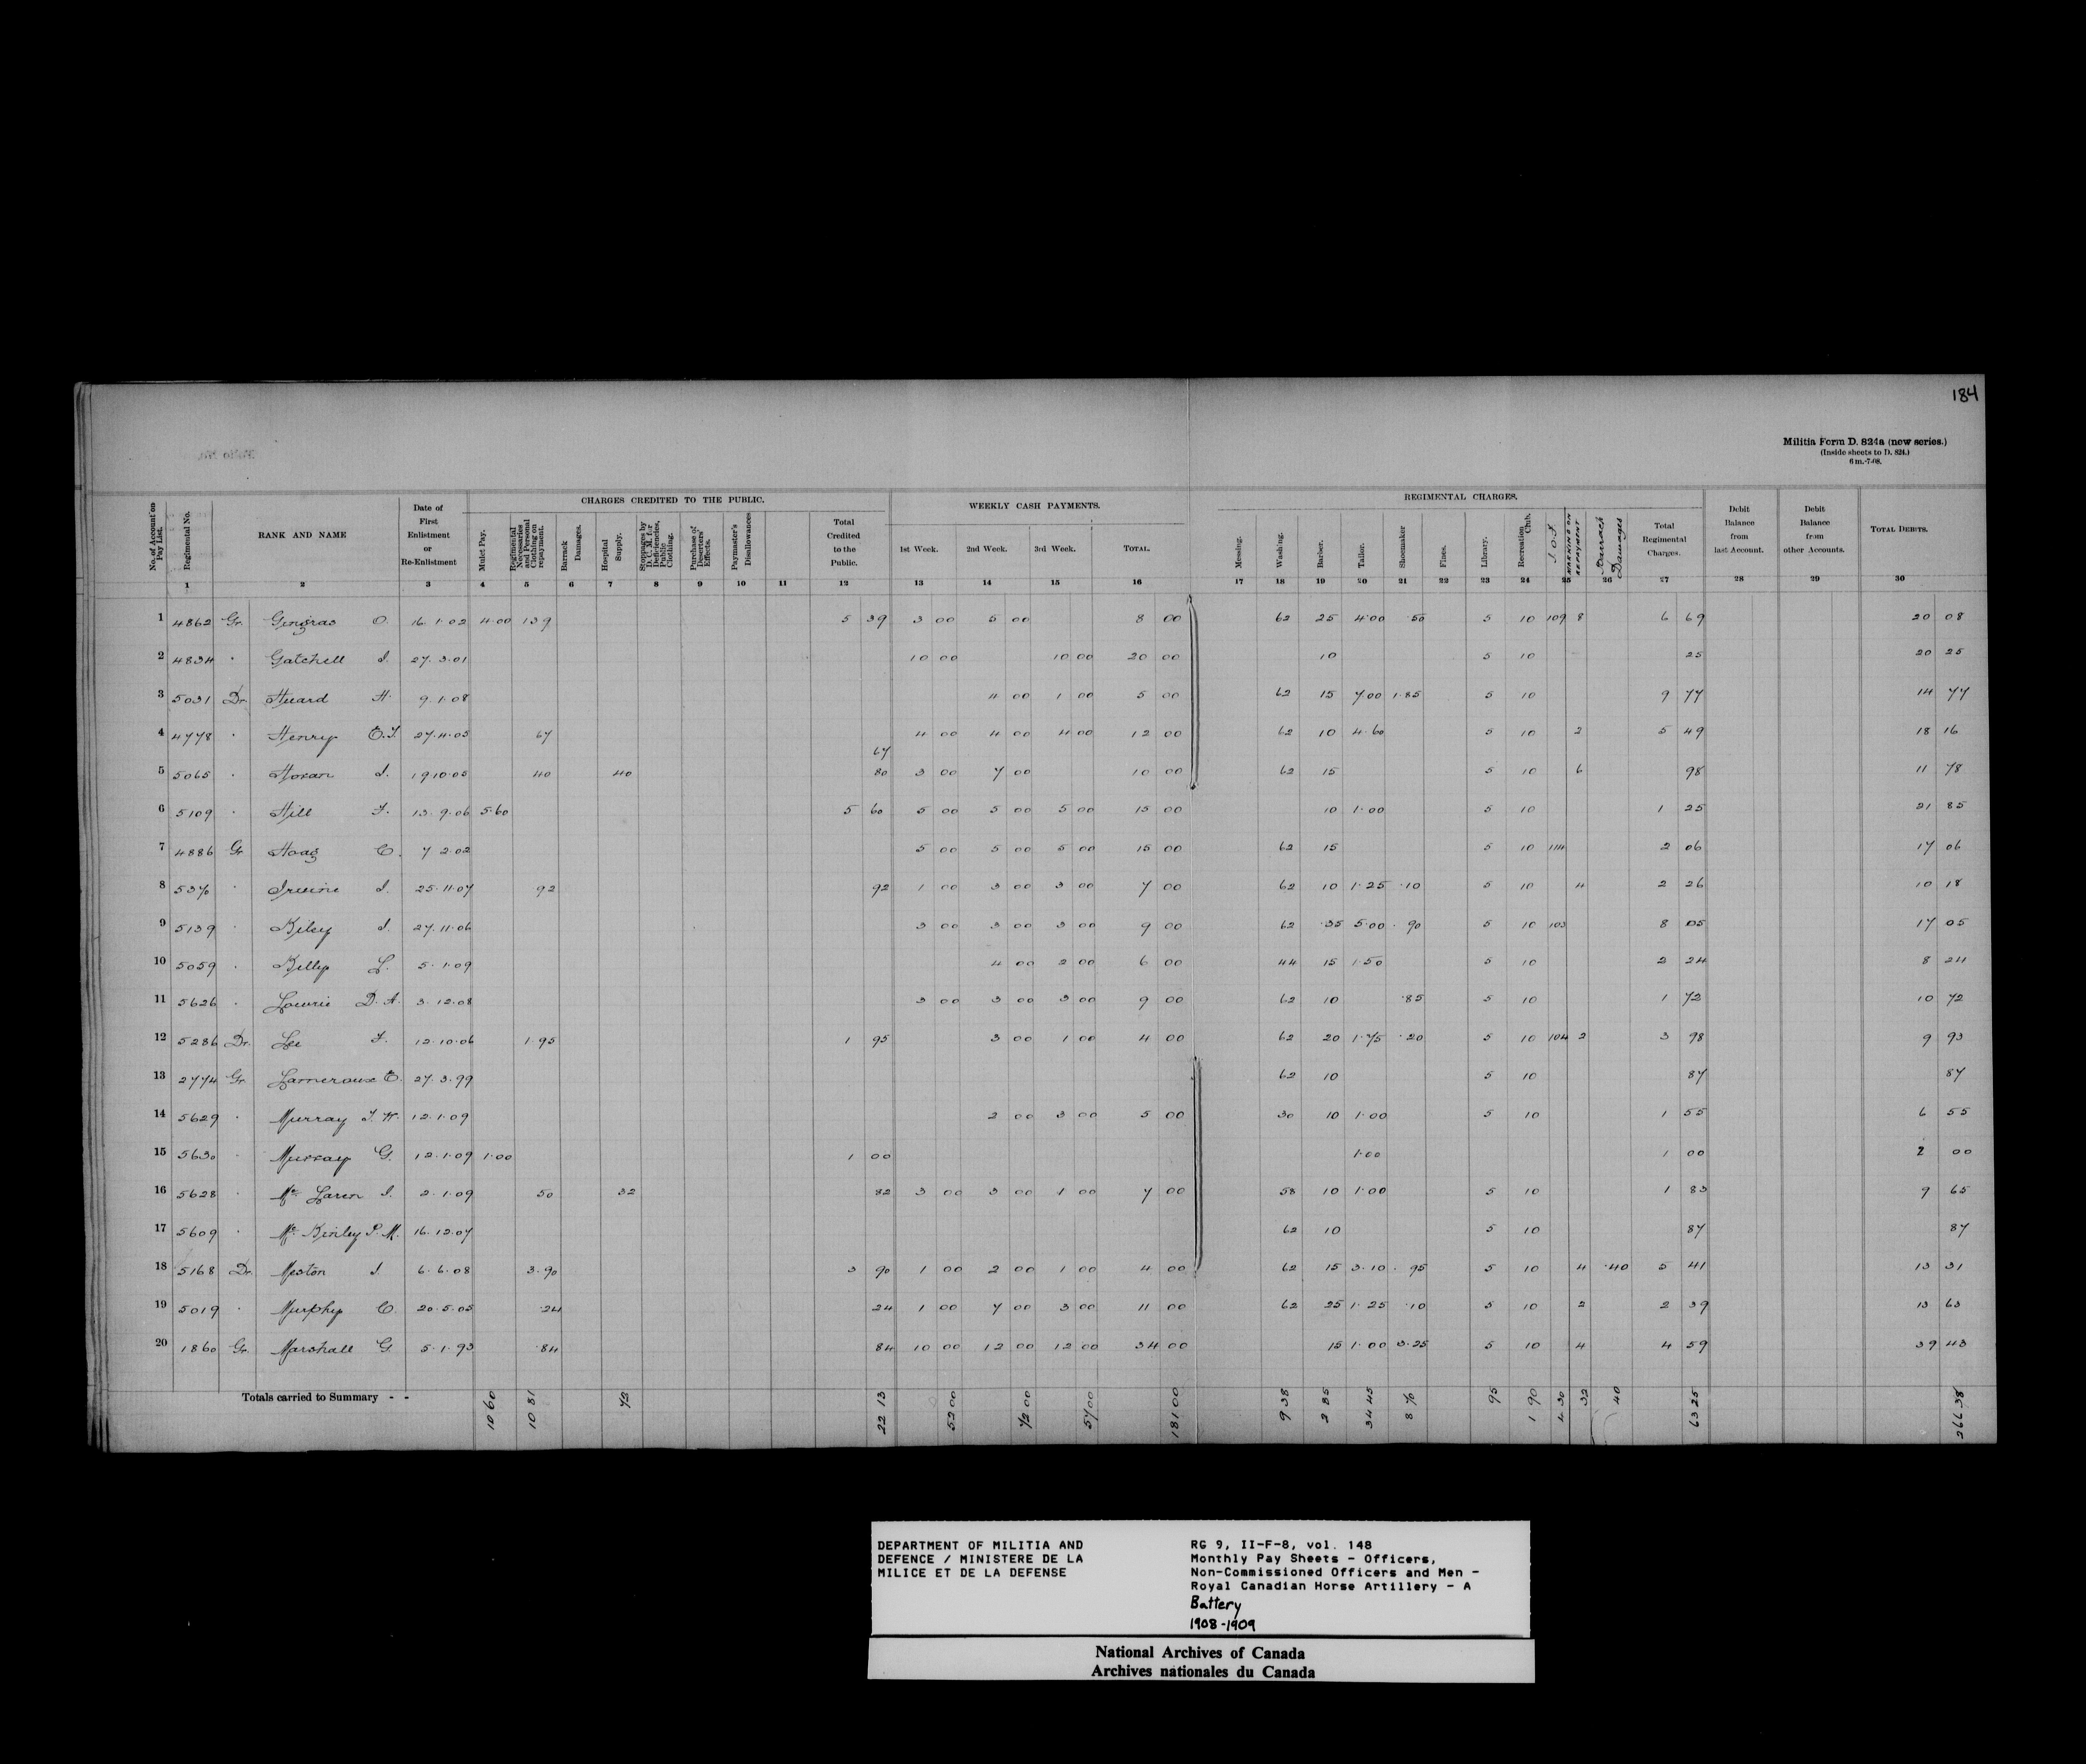 184
Militia Form D. 824a (new series.)
(Inside sheets to D. 824.)
6 m.-7-08.
CHARGES CREDITED TO THE PUBLIC. WEEKLY CASH PAYMENTS. REGIMENTAL CHARGES.
No. of Account on Pay List. Regimental No. RANK AND NAME Date of First Enlistment or Re-Enlistment Mulct Pay. Regimental Necessaries and Personal Clothing on repayment. Barrack Damages. Hospital Supply. Stoppages by D. C. M. for Deficiencies, Public Clothing. Purchase of Deserters' Effects. Paymaster's Disallowances Total Credited to the Public. 1st Week. 2nd Week. 3rd Week. TOTAL. Messing. Washing. Barber. Tailor. Shoemaker Fines. Library. Recreation Club. Barrack Damages Total Regimental Charges. Debit Balance from last Account. Debit Balance from other Accounts. TOTAL DEBITS.
1 2 3 4 5 6 7 8 9 10 11 12 13 14 15 16 17 18 19 20 21 22 23 24 25 26 27 28 29 30
1 4862 Gr. Gingras O. 16.1.02 4.00 139 5 39 3 00 5 00 8 00 62 25 4.00 .50 5 10 109 8 6 69 20 08
2 4834 " Gatchell J. 27.3.01 10 00 10 00 20 00 10 5 10 25 20 25
3 5031 Dr. Huard H. 9.1.08 4 00 1 00 5 00 62 15 7.00 1.85 5 10 9 77 14 77
4 4778 " Henry E.J. 27.4.05 67 67 4 00 4 00 4 00 12 00 62 10 4.60 5 10 2 5 49 18 16
5 5065 " Horan J. 19.10.05 40 40 80 3 00 7 00 10 00 62 15 5 10 6 98 11 78
6 5109 " Hill F. 13.9.06 5.60 5 60 5 00 5 00 5 00 15 00 10 1.00 5 10 1 25 21 85
7 4886 Gr. Hoag C. 7 2.02 5 00 5 00 5 00 15 00 62 15 5 10 114 2 06 17 06
8 5370 " Irvine J. 25.11.07 92 92 1 00 3 00 3 00 7 00 62 10 1.25 .10 5 10 4 2 26 10 18
9 5139 " Kiley J. 27.11.06 3 00 3 00 3 00 9 00 62 .35 5.00 .90 5 10 103 8 05 17 05
10 5059 " Killip L. 5.1.09 4 00 2 00 6 00 44 15 1.50 5 10 2 24 8 24
11 5626 " Lowrie D.A. 3.12.08 3 00 3 00 3 00 9 00 62 10 .85 5 10 1 72 10 72
12 5286 Dr. Lee F. 12.10.06 1.95 1 95 3 00 1 00 4 00 62 20 1.75 .20 5 10 104 2 3 98 9 93
13 2774 Gr. Lameroux E. 27.3.99 62 10 5 10 87 87
14 5629 " Murray J.H. 12.1.09 2 00 3 00 5 00 30 10 1.00 5 10 1 55 6 55
15 5630 " Murray G. 12.1.09 1.00 1 00 1.00 1 00 2 00
16 5628 " Mc Laren J. 2.1.09 50 32 82 3 00 3 00 1 00 7 00 58 10 1.00 5 10 1 83 9 65
17 5609 " Mc Kinley P.M. 16.12.07 62 10 5 10 87 87
18 5168 Dr. Meston J. 6.6.08 3.90 3 90 1 00 2 00 1 00 4 00 62 15 3.10 .95 5 10 4 .40 5 41 13 31
19 5019 " Murphy C. 20.5.05 .24 24 1 00 7 00 3 00 11 00 62 25 1.25 .10 5 10 2 2 39 13 63
20 1860 Gr. Marshall G. 5.1.93 .84 84 10 00 12 00 12 00 34 00 15 1.00 3.25 5 10 4 4 59 39 43
Totals carried to Summary - - 10 60 10 81 72 22 13 52 00 72 00 57 00 181 00 9 38 2 85 34 45 8 70 95 1 90 4 30 32 40 63 25 266 38
DEPARTMENT OF MILITIA AND
DEFENCE / MINISTERE DE LA
MILICE ET DE LA DEFENSE
RG 9, II-F-8, vol. 148
Monthly Pay Sheets - Officers,
Non-Commissioned Officers and Men -
Royal Canadian Horse Artillery - A
Battery
1908-1909
National Archives of Canada
Archives nationales du Canada